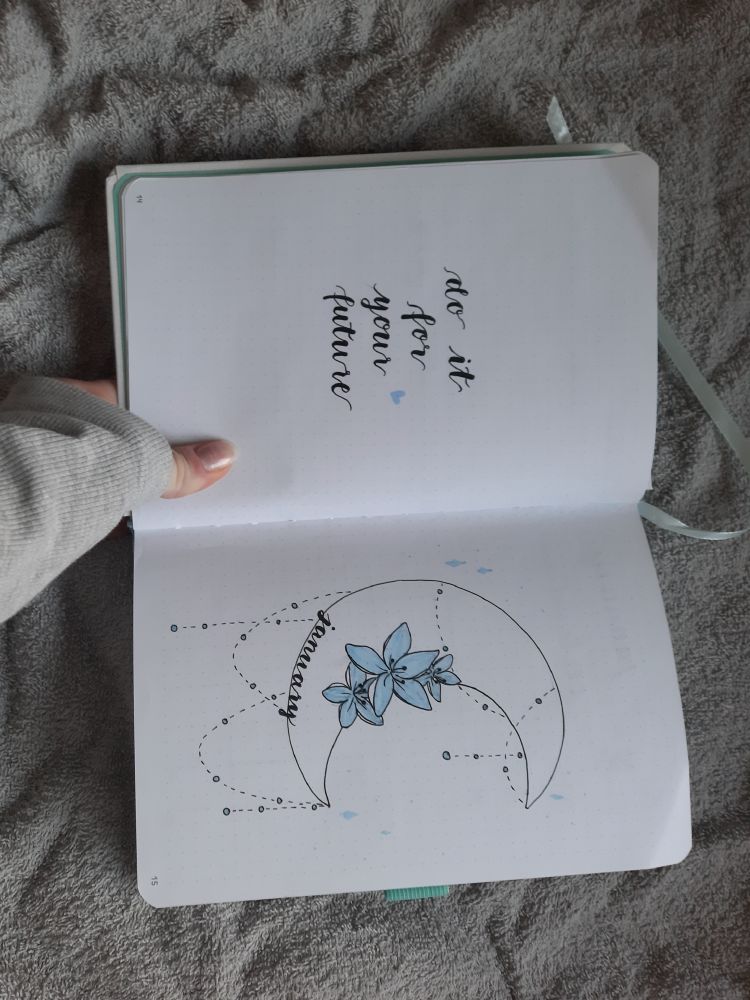 do it
for
your
future
14
january
15